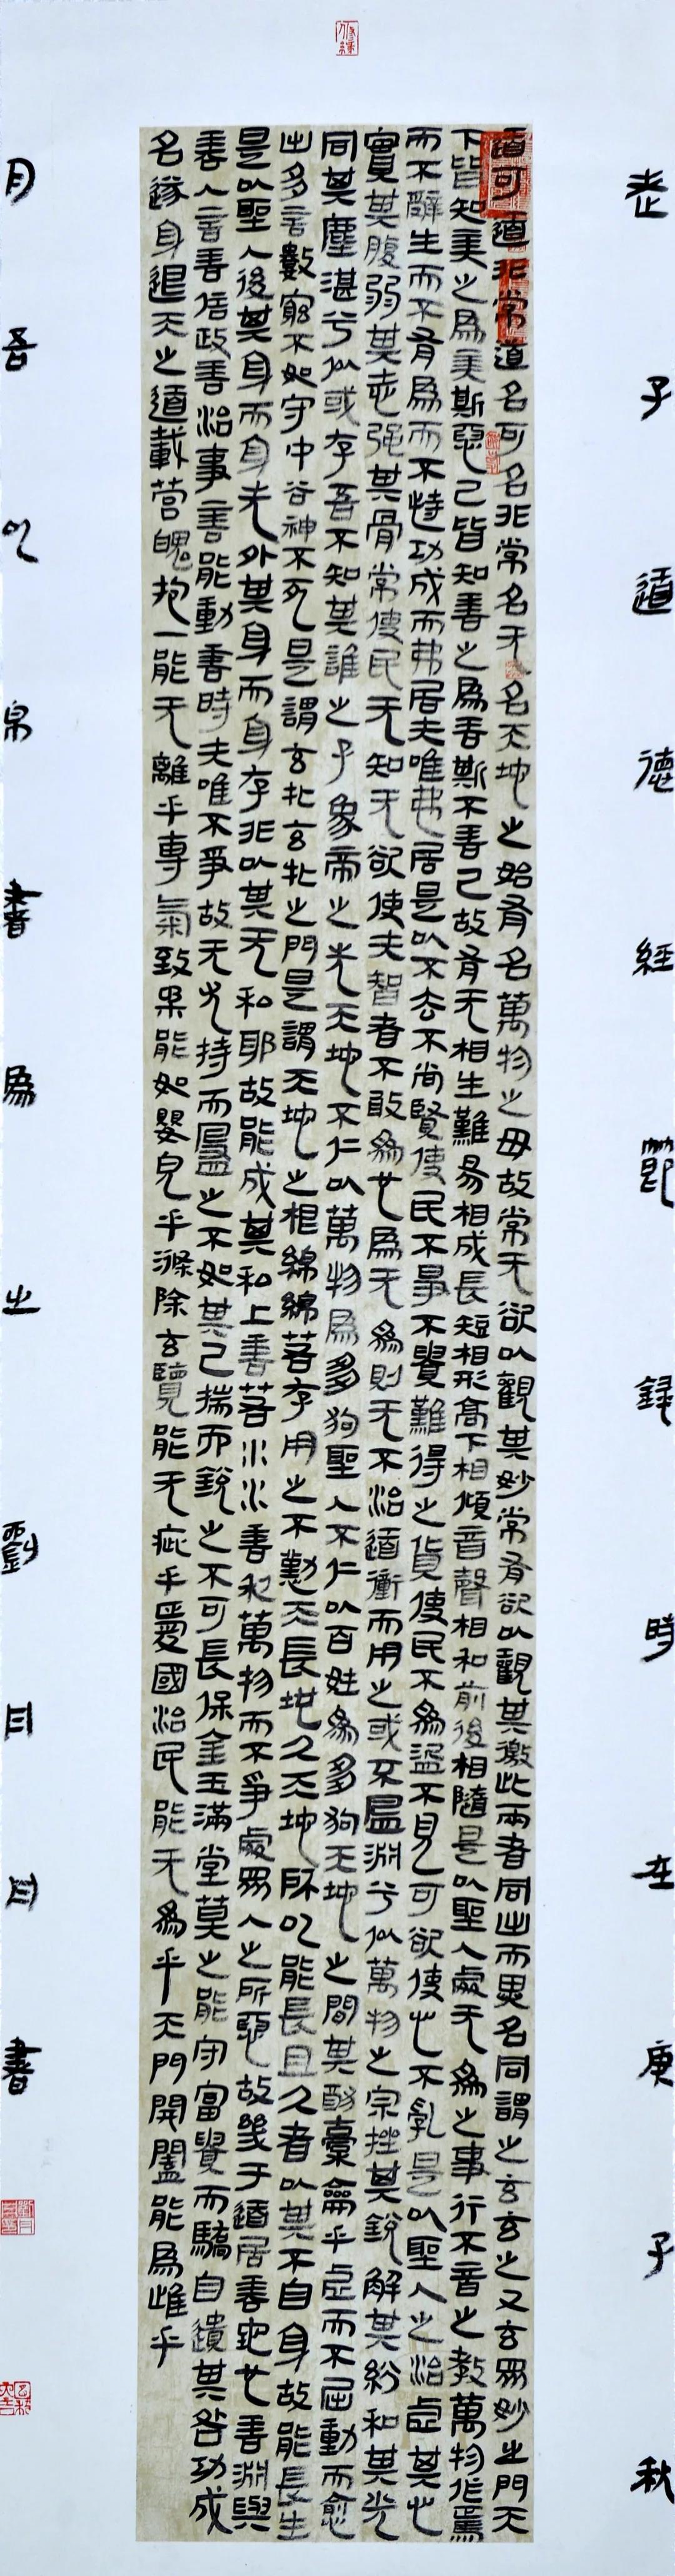 老子道德經節錄時在庚子秋
道可道非常道名可名非常名无名天地之始有名萬物之母故常无欲以觀其妙常有欲以觀其徼此兩者同出而異名同謂之玄玄之又玄眾妙之門天
下皆知美之為美斯惡已皆知善之為善斯不善已故有无相生難易相成長短相形高下相傾音聲相和前後相隨是以聖人處无為之事行不言之教萬物作焉
而不辭生而不有為而不恃功成而弗居夫唯弗居是以不去不尚賢使民不爭不貴難得之貨使民不為盜不見可欲使心不亂是以聖人之治虛其心
實其腹弱其志强其骨常使民无知无欲使夫智者不敢為也為无為則无不治道衝而用之或不盈淵兮似萬物之宗挫其銳解其紛和其光
同其塵湛兮似或存吾不知其誰之子象帝之先天地不仁以萬物為芻狗聖人不仁以百姓為芻狗天地之間其猶橐籥乎虛而不屈動而愈
出多言數窮不如守中谷神不死是謂玄牝玄牝之門是謂天地之根綿綿若存用之不勤天長地久天地所以能長且久者以其不自身故能長生
是以聖人後其身而身先外其身而身存非以其无私耶故能成其私上善若水水善利萬物而不爭處眾人之所惡故幾于道居善地心善淵與
善人言善信政善治事善能動善時夫唯不爭故无尤持而盈之不如其已揣而銳之不可長保金玉滿堂莫之能守富貴而驕自遺其咎功成
名遂身退天之道載營魄抱一能无離乎專氣致柔能如嬰兒乎滌除玄覽能无疵乎愛國治民能无為乎天門開闔能為雌乎
月吾以帛書為之劉月月書